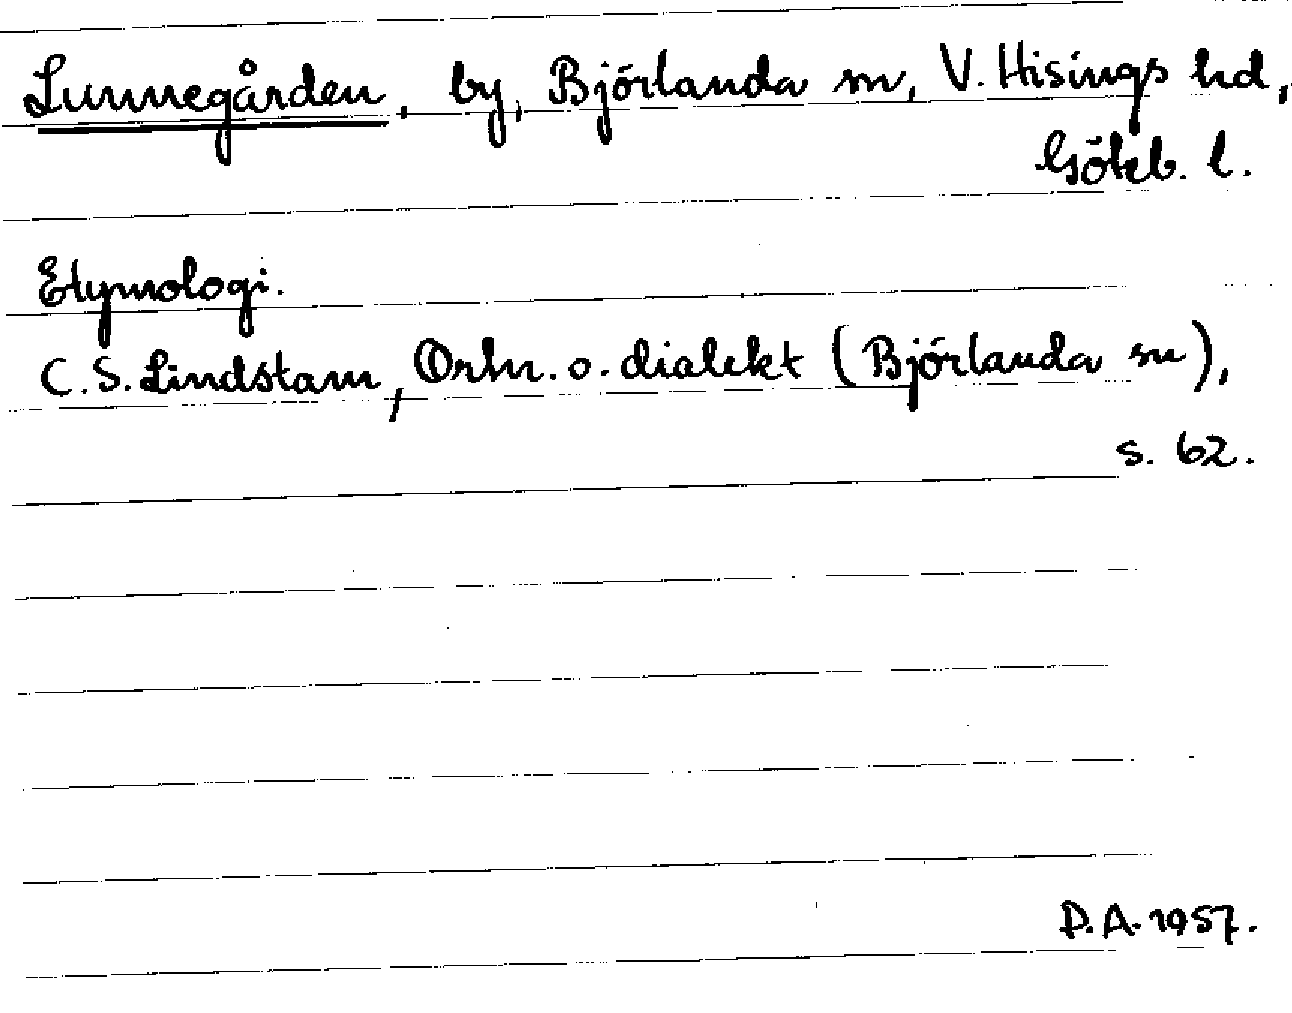 Lunnegården, by, Björlanda sn, V. Hisings hd,
Göteb. l.
Etymologi.
C. S. Lindstam, Ortn. o. dialekt (Björlanda sn),
s. 62.
D.A. 1957.